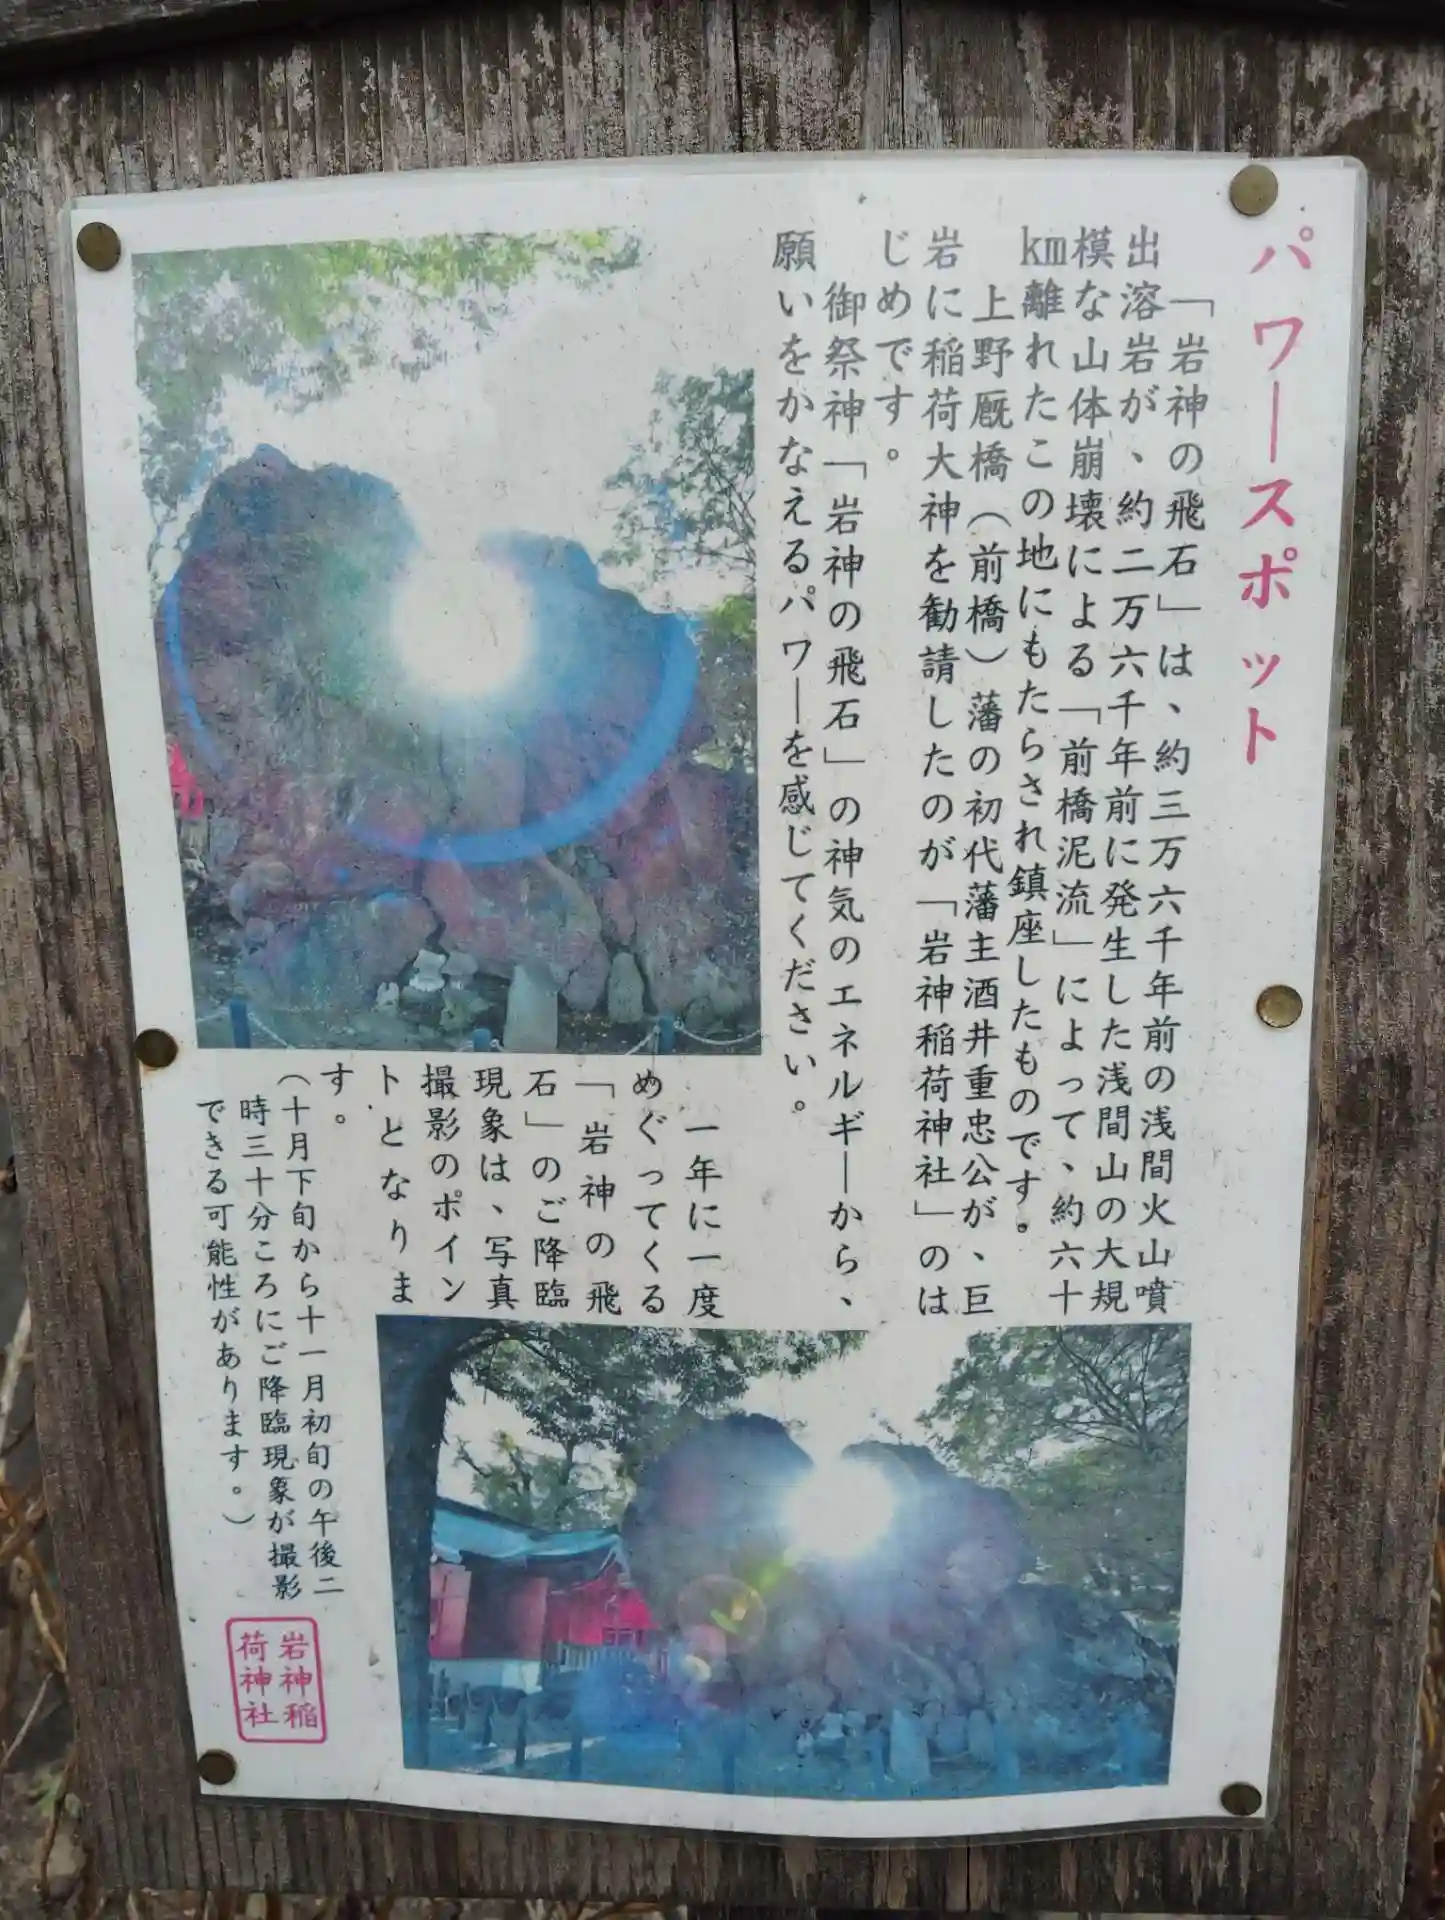 パワースポット
「岩神の飛石」は、約三万六千年前の浅間火山噴
出溶岩が、約二万六千年前に発生した浅間山の大規
模な山体崩壊による「前橋泥流」によって、約六十
km離れたこの地にもたらされ鎮座したものです。
上野厩橋（前橋）藩の初代藩主酒井重忠公が、巨
岩に稲荷大神を勧請したのが「岩神稲荷神社」のは
じめです。
御祭神「岩神の飛石」の神気のエネルギーから、
願いをかなえるパワーを感じてください。
一年に一度
めぐってくる
「岩神の飛
石」のご降臨
現象は、写真
撮影のポイン
トとなりま
す。
（十月下旬から十一月初旬の午後二
時三十分ころにご降臨現象が撮影
できる可能性があります。）
岩神稲
荷神社